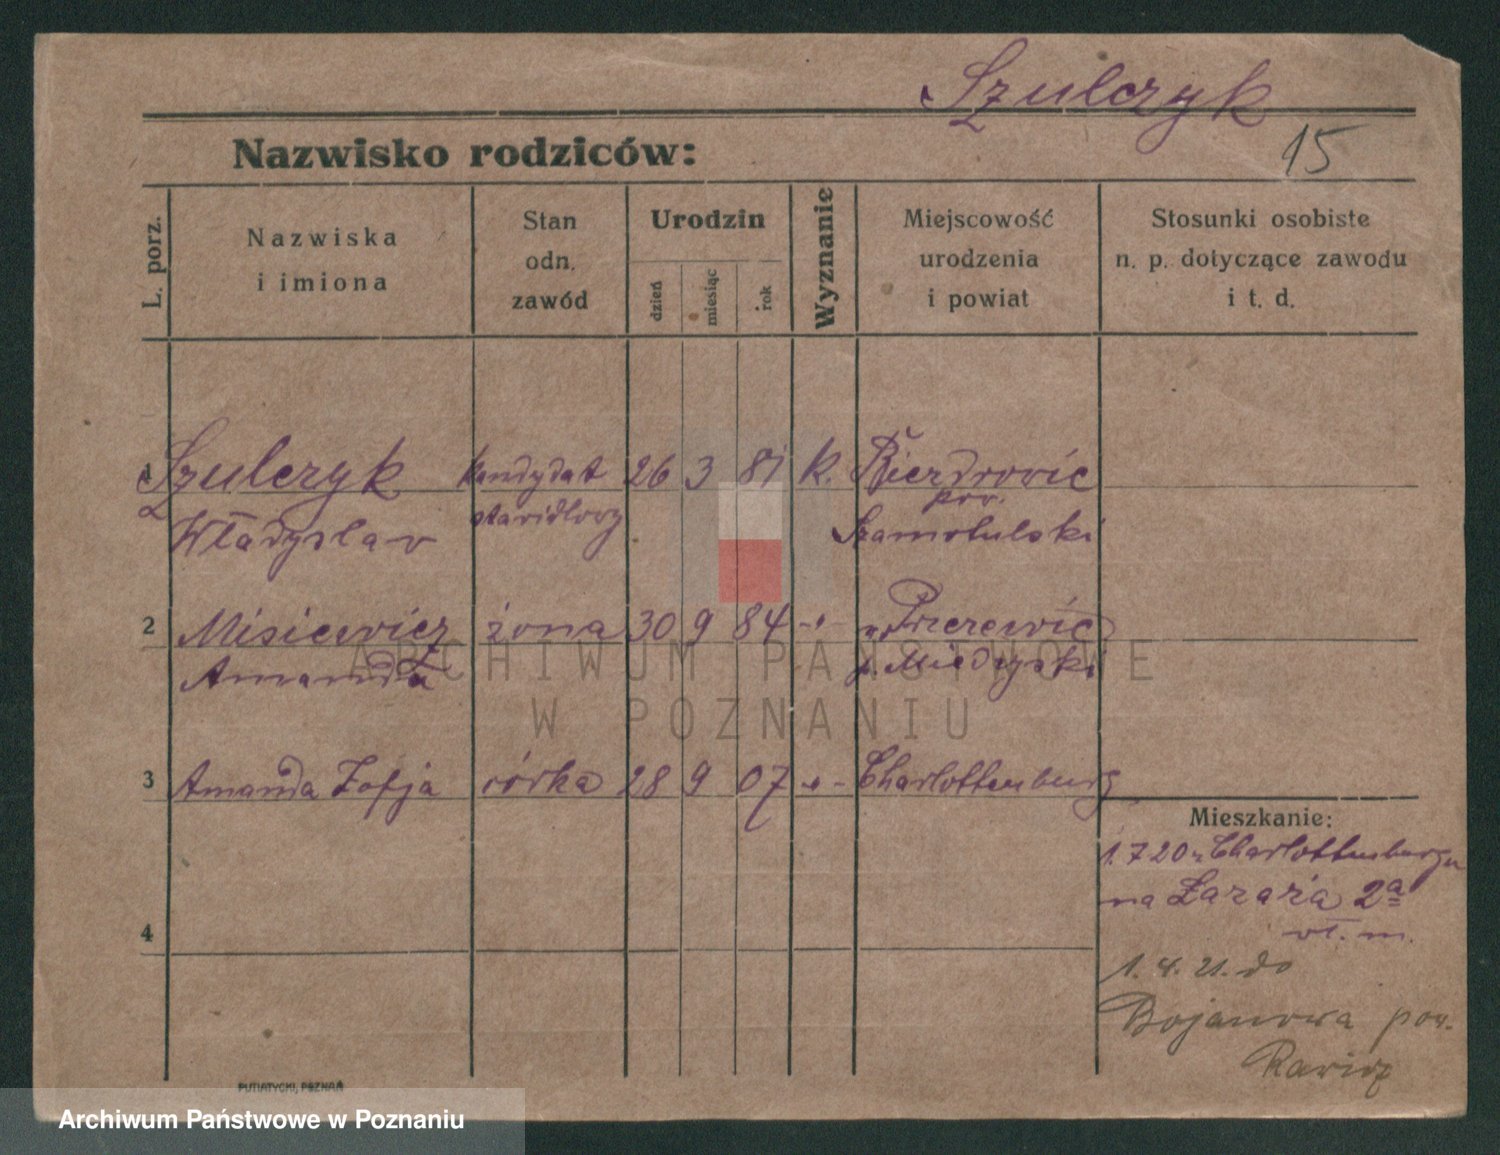 Szulczyk
15
Nazwisko rodziców:
L. porz.
Nazwiska
i imiona
Stan
odn.
zawód
Urodzin
dzień
miesiąc
rok
Wyznanie
Miejscowość
urodzenia
i powiat
Stosunki osobiste
n. p. dotyczące zawodu
i t. d.
1 Szulczyk kandydat 26 3 81 k. Bierdrowic
pow.
Władysław Szamotulski
2 Misiewicz żona 30 9 84 -"-
Amanda
3 Amanda Zofja córka 28 9 07 -"- Charlottenburg
Mieszkanie:
1.7 20 z Charlottenburgu
na Łazarza 2a
wł. m.
4
1. 4. 21. do
Bojanowa pow.
Rawicz
PUTIATYCKI, POZNAŃ
ARCHIWUM PAŃSTWOWE
W POZNANIU
Archiwum Państwowe w Poznaniu